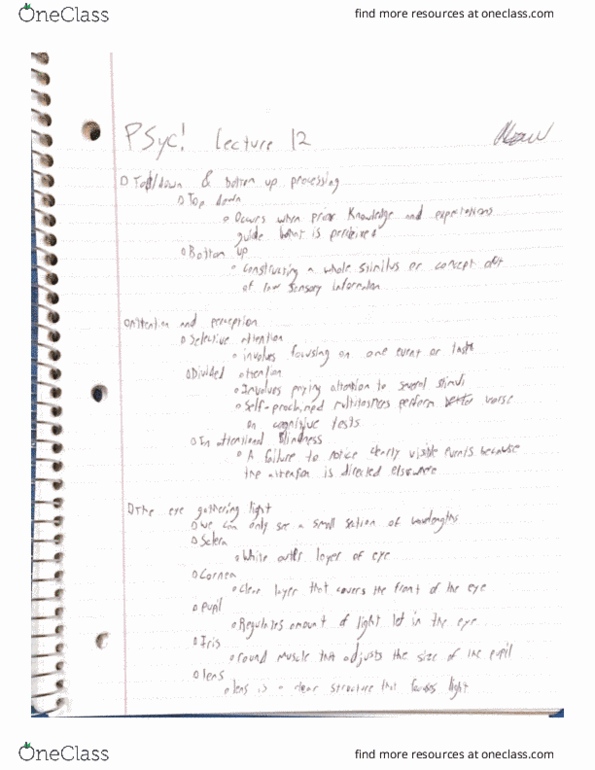 OneClass
find more resources at oneclass.com
PSyc! Lecture 12
Top/down & bottom up processing
Top down
Occurs when prior Knowledge and expectations
guide what is perceived
Bottom up
Constructing a whole stimulus or concept out
of raw sensory information
Attention and perception
Selective attention
involves focusing on one event or task
Divided attention
Involves paying attention to several stimuli
Self-proclaimed multitaskers perform better worse
on cognitive tests
In attentional Blindness
A failure to notice clearly visible events because
the attention is directed elsewhere
The eye gathering light
we can only see a small section of wavelengths
Sclera
White outer layer of eye
Cornea
Clear layer that covers the front of the eye
Pupil
Regulates amount of light let in the eye
Iris
round muscle that adjusts the size of the pupil
lens
lens is a clear structure that focuses light
OneClass
find more resources at oneclass.com